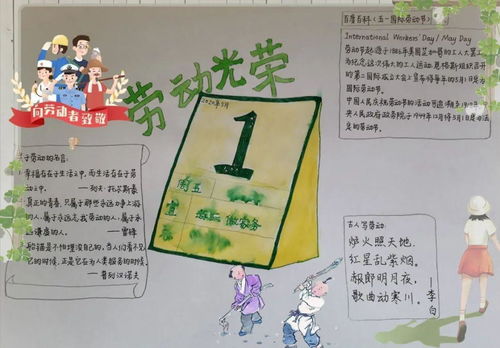 向劳动者致敬
劳动光荣
2020年5月
1
周五
宜
做家务
百度百科(五一国际劳动节)
International Workers' Day / May Day
劳动节起源于1886年美国芝加哥的工人大罢工
为纪念这次伟大的工人运动,恩格斯组织召开
的第二国际成立大会上宣布将每年的5月1日定为
国际劳动节。
中国人民庆祝劳动节的活动可追溯至1918年
央人民政府政务院于1949年12月将5月1日定为法
定的劳动节。
关于劳动的名言
幸福存在于生活之中,而生活存在于劳
动之中。
——列夫·托尔斯泰
真正的青春,只属于那些永远力争上游
的人,属于永远忘我劳动的人,属于永
远谦虚的人。
——雷锋
——普列汉诺夫
古人写劳动:
炉火照天地,
红星乱紫烟。
赧郎明月夜,
歌曲动寒川。
——李白